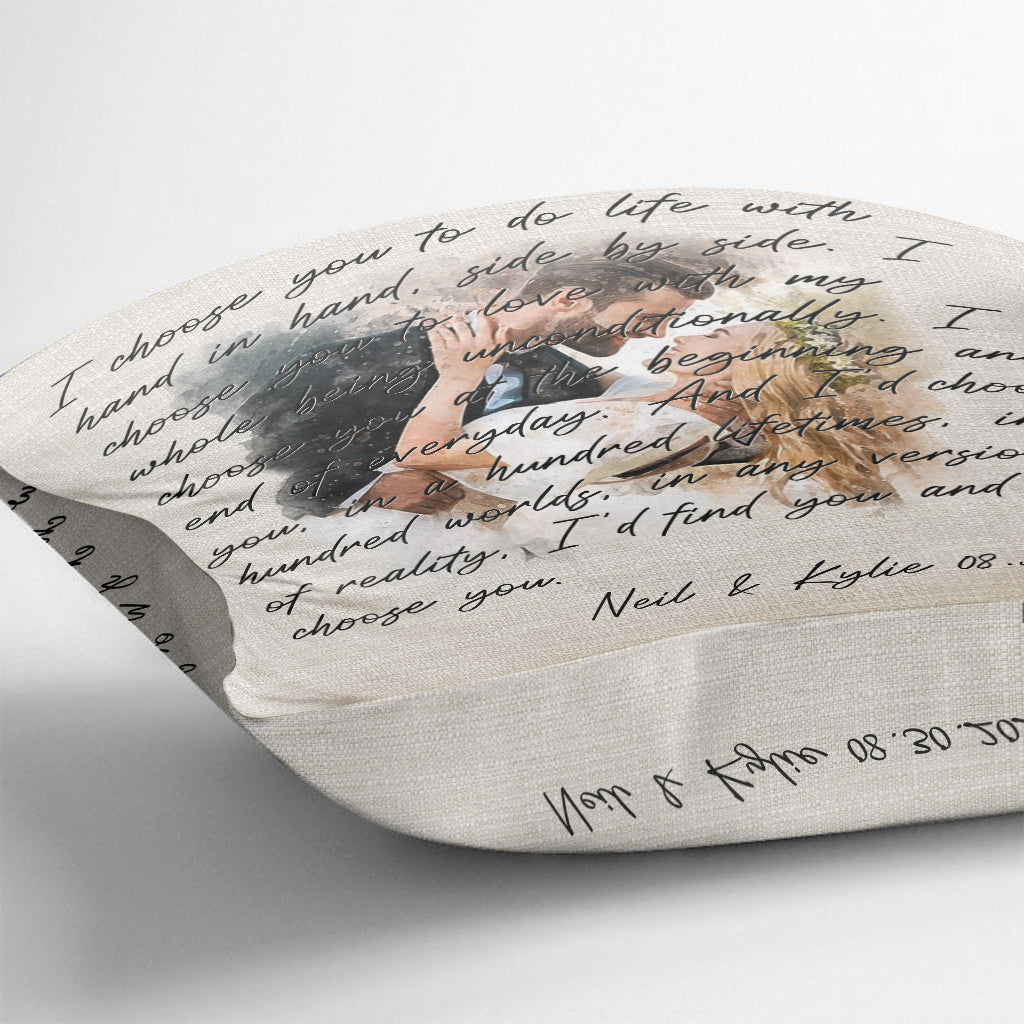 I choose you to do life with
hand in hand, side by side. I
choose you to love with my
whole being unconditionally. I
choose you at the beginning
end of everyday. And I'd
you, in a hundred lifetimes,
hundred worlds, in any
of reality, I'd find you and
choose you.
Neil & Kylie 08
Neil & Kylie 08.30.